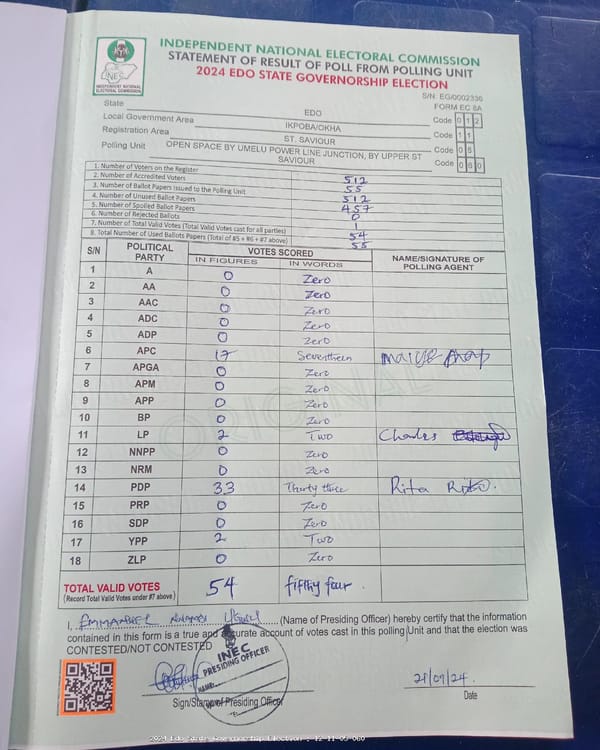 INDEPENDENT NATIONAL ELECTORAL COMMISSION
STATEMENT OF RESULT OF POLL FROM POLLING UNIT
2024 EDO STATE GOVERNORSHIP ELECTION
INEC
INDEPENDENT NATIONAL ELECTORAL COMMISSION
S/N: EG/0002336
FORM EC 8A
State EDO Code 012
Local Government Area IKPOBA/OKHA Code 11
Registration Area ST. SAVIOUR Code 05
Polling Unit OPEN SPACE BY UMELU POWER LINE JUNCTION, BY UPPER ST SAVIOUR Code 060
1. Number of Voters on the Register 512
2. Number of Accredited Voters 55
3. Number of Ballot Papers Issued to the Polling Unit 512
4. Number of Unused Ballot Papers 457
5. Number of Spoiled Ballot Papers 0
6. Number of Rejected Ballots 1
7. Number of Total Valid Votes (Total Valid Votes cast for all parties) 54
8. Total Number of Used Ballots Papers (Total of #5 + #6 + #7 above) 55
S/N POLITICAL PARTY VOTES SCORED NAME/SIGNATURE OF POLLING AGENT
IN FIGURES IN WORDS
1 A 0 Zero
2 AA 0 Zero
3 AAC 0 Zero
4 ADC 0 Zero
5 ADP 0 Zero
6 APC 17 Seventheen
7 APGA 0 Zero
8 APM 0 Zero
9 APP 0 Zero
10 BP 0 Zero
11 LP 2 Two Charles
12 NNPP 0 Zero
13 NRM 0 Zero
14 PDP 33 Thirty three Rita
15 PRP 0 Zero
16 SDP 0 Zero
17 YPP 2 Two
18 ZLP 0 Zero
ORIGINAL
TOTAL VALID VOTES 54 fifthy four.
(Record Total Valid Votes under #7 above)
I, EMMANUEL (Name of Presiding Officer) hereby certify that the information
contained in this form is a true and accurate account of votes cast in this polling Unit and that the election was
CONTESTED/NOT CONTESTED
INEC
PRESIDING OFFICER
NAME:
Sign/Stamp of Presiding Officer
21/09/24.
Date
2024 Edo State Governorship Election : 12-11-05-060